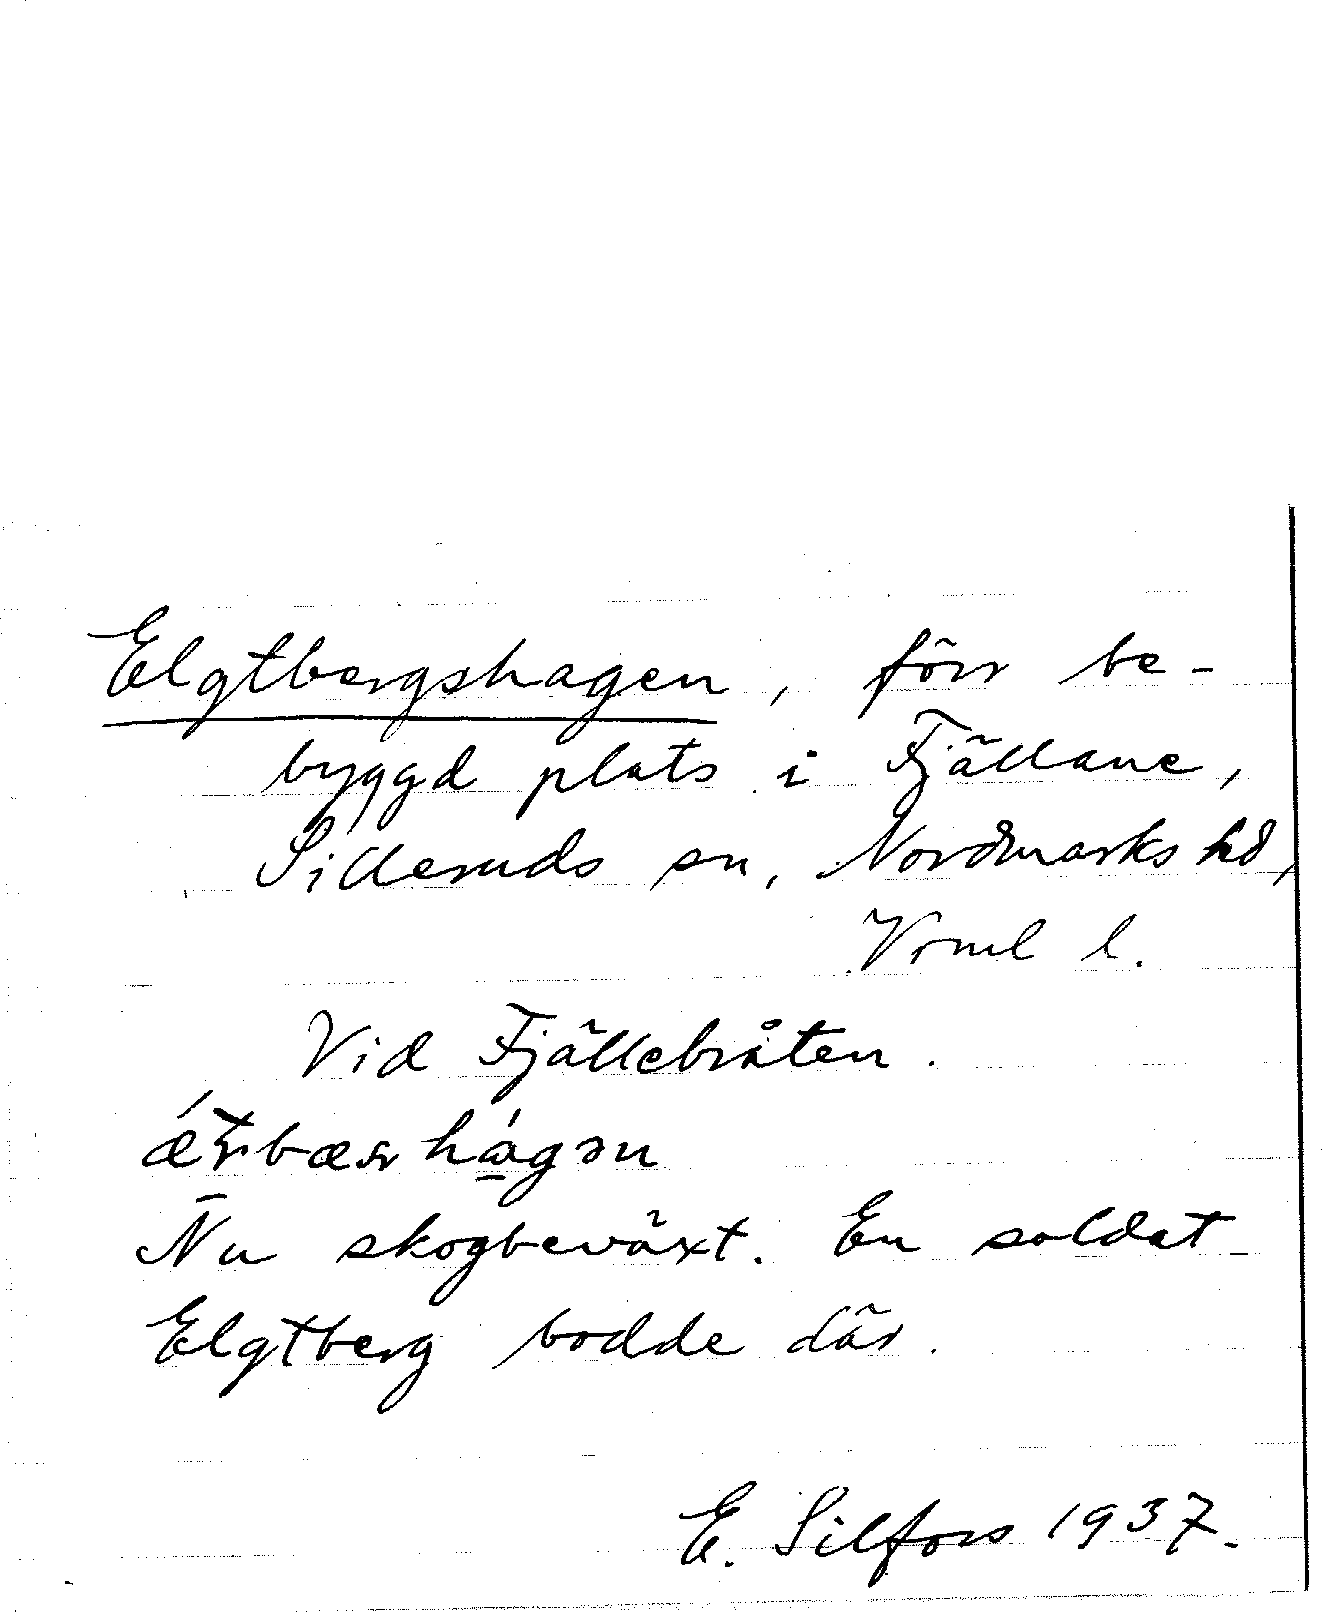 Elgtbergshagen, förr be-
byggd plats i Fjällane,
Silleruds sn, Nordmarks hd,
Vrml l.
Vid Fjällebråten.
Nu skogbeväxt. En soldat
Elgtberg bodde där.
E. Silfors 1937.